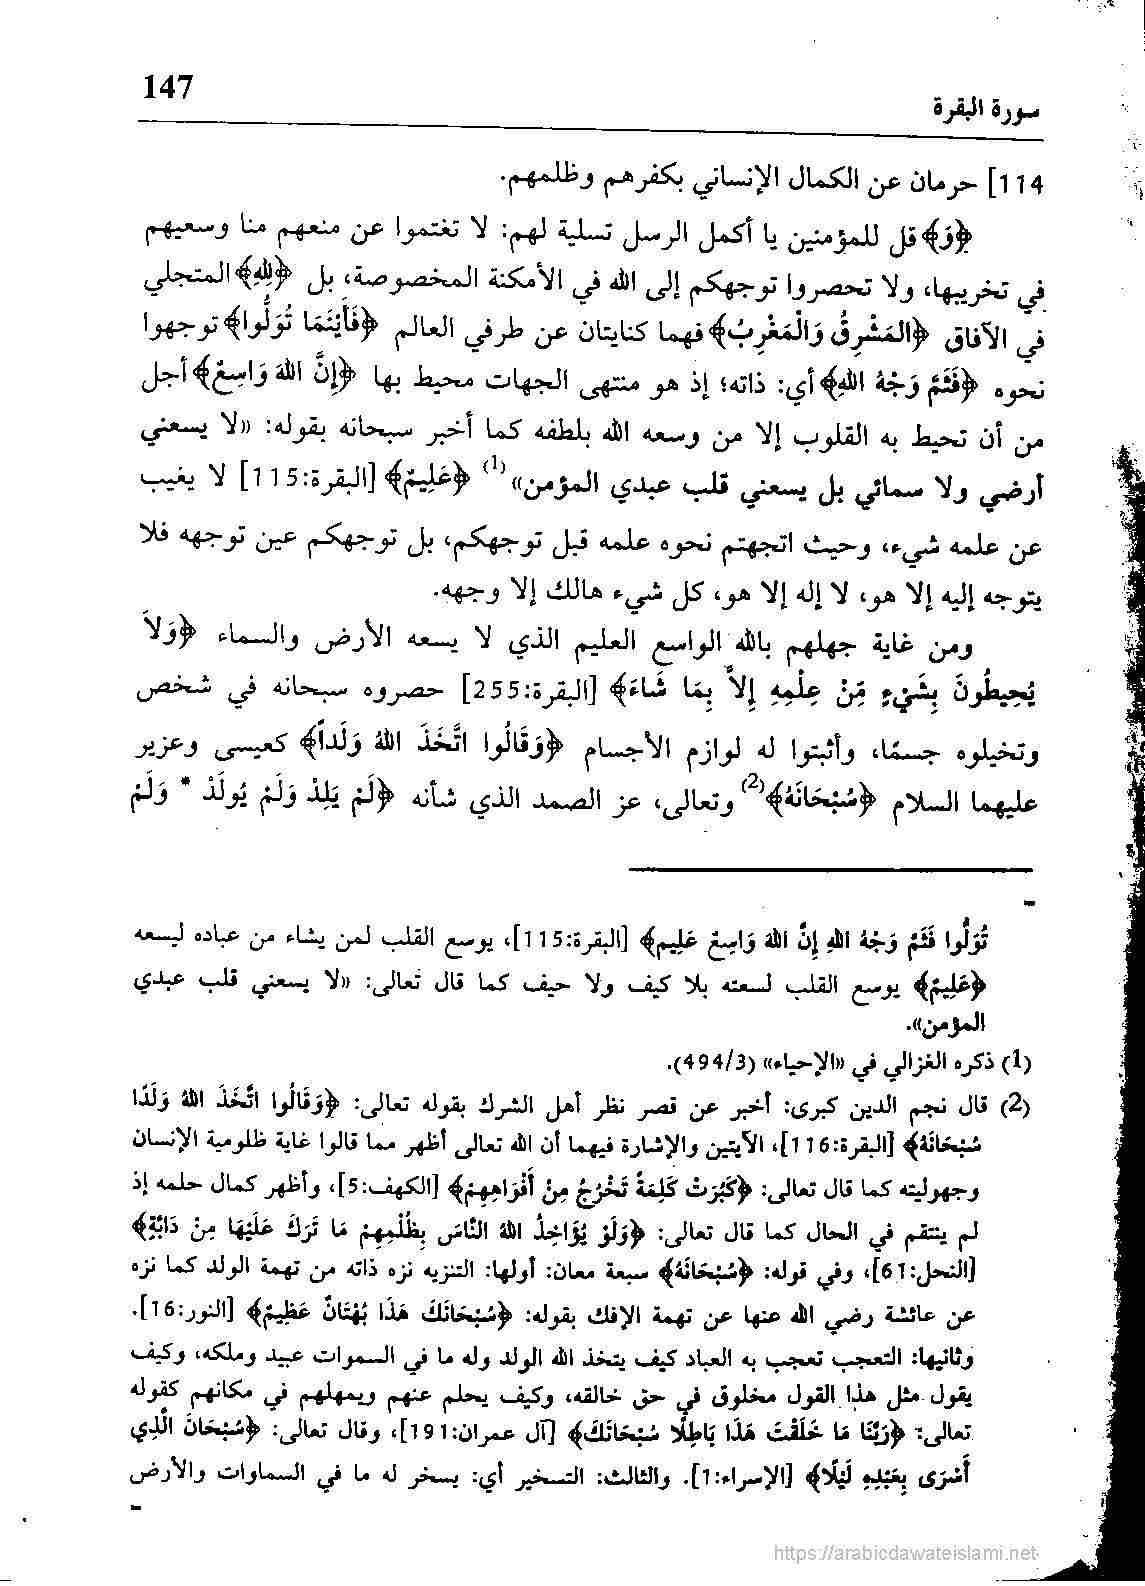 147
سورة البقرة
114] حرمان عن الكمال الإنساني بكفرهم وظلمهم.
﴿وَ﴾ قل للمؤمنين يا أكمل الرسل تسلية لهم: لا تغتموا عن منعهم منا وسعيهم
في تخريبها، ولا تحصروا توجهكم إلى الله في الأمكنة المخصوصة، بل ﴿لِلَّهِ﴾ المتجلي
في الآفاق ﴿المَشْرِقُ وَالْمَغْرِبُ﴾ فهما كنايتان عن طرفي العالم ﴿فَأَيْنَمَا تُوَلُّوا﴾ توجهوا
نحوه ﴿فَثَمَّ وَجْهُ اللهِ﴾ أي: ذاته؛ إذ هو منتهى الجهات محيط بها ﴿إِنَّ اللهَ وَاسِعٌ﴾ أجل
من أن تحيط به القلوب إلا من وسعه الله بلطفه كما أخبر سبحانه بقوله: «لا يسعني
أرضي ولا سمائي بل يسعني قلب عبدي المؤمن»(1) ﴿عَلِيمٌ﴾ [البقرة:115] لا يغيب
عن علمه شيء، وحيث اتجهتم نحوه علمه قبل توجهكم، بل توجهكم عين توجهه فلا
يتوجه إليه إلا هو، لا إله إلا هو، كل شيء هالك إلا وجهه.
ومن غاية جهلهم بالله الواسع العليم الذي لا يسعه الأرض والسماء ﴿وَلاَ
يُحِيطُونَ بِشَيْءٍ مِّنْ عِلْمِهِ إِلاَّ بِمَا شَاءَ﴾ [البقرة:255] حصروه سبحانه في شخص
وتخيلوه جسمًا، وأثبتوا له لوازم الأجسام ﴿وَقَالُوا اتَّخَذَ اللهُ وَلَداً﴾ كعيسى وعزير
عليهما السلام ﴿سُبْحَانَهُ﴾(2) وتعالى، عز الصمد الذي شأنه ﴿لَمْ يَلِدْ وَلَمْ يُولَدْ * وَلَمْ
تُوَلُّوا فَثَمَّ وَجْهُ اللهِ إِنَّ اللهَ وَاسِعٌ عَلِيم﴾ [البقرة:115]، يوسع القلب لمن يشاء من عباده ليسعه
﴿عَلِيمٌ﴾ يوسع القلب لسعته بلا كيف ولا حيف كما قال تعالى: «لا يسعني قلب عبدي
المؤمن».
(1) ذكره الغزالي في «الإحياء» (494/3).
(2) قال نجم الدين كبرى: أخبر عن قصر نظر أهل الشرك بقوله تعالى: ﴿وَقَالُوا اتَّخَذَ اللهُ وَلَدًا
سُبْحَانَهُ﴾ [البقرة:116]، الآيتين والإشارة فيهما أن الله تعالى أظهر مما قالوا غاية ظلومية الإنسان
وجهوليته كما قال تعالى: ﴿كَبُرَتْ كَلِمَةً تَخْرُجُ مِنْ أَفْوَاهِهِمْ﴾ [الكهف:5]، وأظهر كمال حلمه إذ
لم ينتقم في الحال كما قال تعالى: ﴿وَلَوْ يُؤَاخِذُ اللهُ النَّاسَ بِظُلْمِهِمْ مَا تَرَكَ عَلَيْهَا مِنْ دَابَّةٍ﴾
[النحل:61]، وفي قوله: ﴿سُبْحَانَهُ﴾ سبعة معان: أولها: التنزيه نزه ذاته من تهمة الولد كما نزه
عن عائشة رضي الله عنها عن تهمة الإفك بقوله: ﴿سُبْحَانَكَ هَذَا بُهْتَانٌ عَظِيمٌ﴾ [النور:16].
وثانيها: التعجب تعجب به العباد كيف يتخذ الله الولد وله ما في السموات عبيد وملكه، وكيف
يقول مثل هذا القول مخلوق في حق خالقه، وكيف يحلم عنهم ويمهلهم في مكانهم كقوله
تعالى: ﴿رَبَّنَا مَا خَلَقْتَ هَذَا بَاطِلًا سُبْحَانَكَ﴾ [آل عمران:191]، وقال تعالى: ﴿سُبْحَانَ الَّذِي
أَسْرَى بِعَبْدِهِ لَيْلًا﴾ [الإسراء:1]. والثالث: التسخير أي: يسخر له ما في السماوات والأرض
https://arabicdawateislami.net